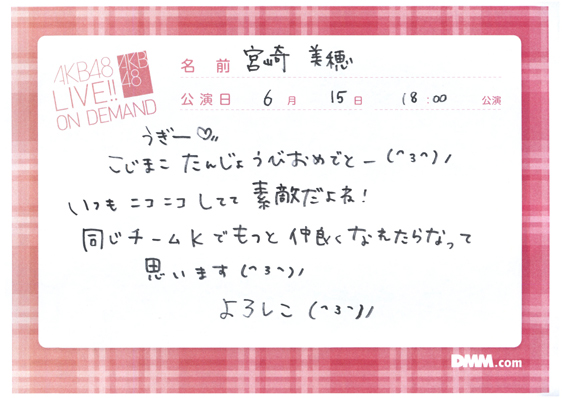 AKB48
LIVE!!
ON DEMAND
AKB
48
名前 宮崎 美穂
公演日 6月 15日 18:00 公演
うぎー♡,,
こじまこ たんじょうびおめでとー(^3^)ノ
いつも ニコニコしてて 素敵だよね!
同じチームKでもっと仲良くなれたらなって
思います(^3^)ノ
よろしこ(^3^)ノ
DMM.com